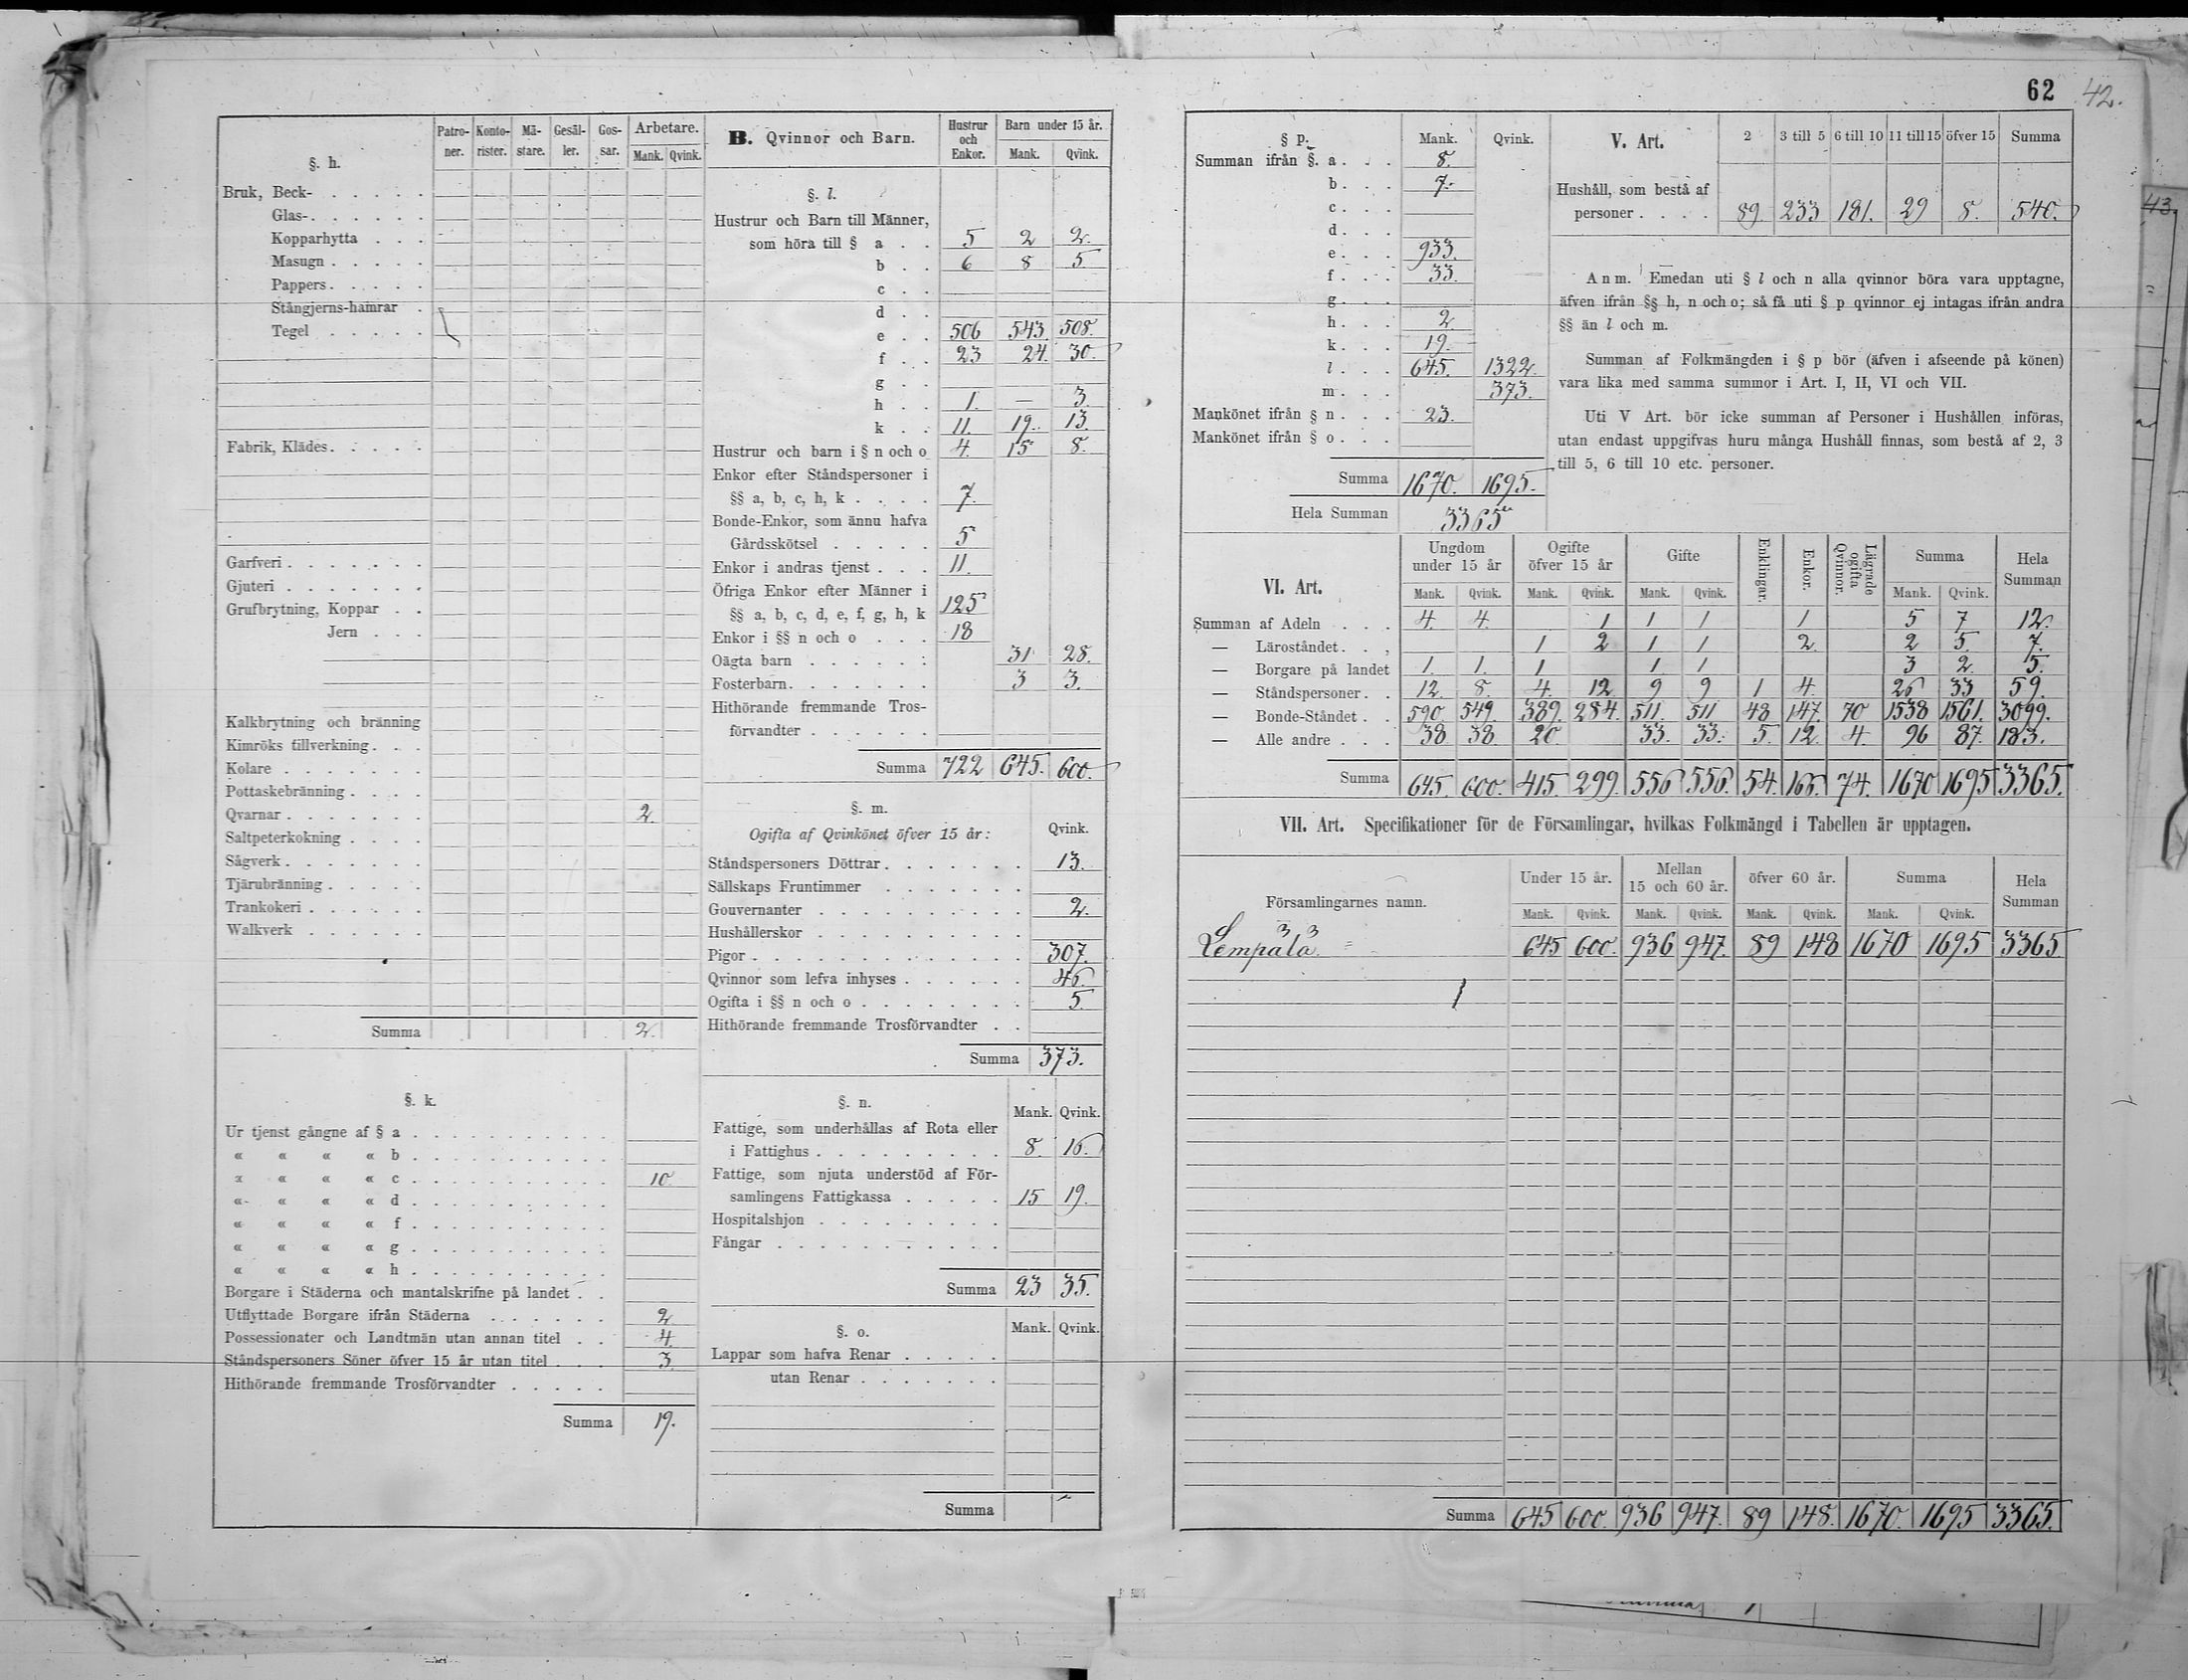 62 42.
§. h. Patro-ner. Konto-rister. Mä-stare. Gesäl-ler. Gos-sar. Arbetare. Mank. Qvink.
Bruk, Beck-
Glas-
Kopparhytta
Masugn
Pappers
Stångjerns-hamrar
Tegel
Fabrik, Klädes
Garfveri
Gjuteri
Grufbrytning, Koppar
Jern
Kalkbrytning och bränning
Kimröks tillverkning
Kolare
Pottaskebränning
Qvarnar 2.
Saltpeterkokning
Sågverk
Tjärubränning
Trankokeri
Walkverk
Summa 2.
§. k.
Ur tjenst gångne af § a
« « « « b
« « « « c 10
« « « « d
« « « « f
« « « « g
« « « « h
Borgare i Städerna och mantalskrifne på landet
Utflyttade Borgare ifrån Städerna 2
Possessionater och Landtmän utan annan titel 4.
Ståndspersoners Söner öfver 15 år utan titel 3.
Hithörande fremmande Trosförvandter
Summa 19.
B. Qvinnor och Barn. Hustrur och Enkor. Barn under 15 år. Mank. Qvink.
§. l.
Hustrur och Barn till Männer,
som höra till § a 5 2 2.
b 6 8 5.
c
d
e 506 543. 508.
f 23 24. 30.
g
h 1. — 3.
k 11. 19. 13.
Hustrur och barn i § n och o 4. 15 8.
Enkor efter Ståndspersoner i
§§ a, b, c, h, k 7.
Bonde-Enkor, som ännu hafva
Gårdsskötsel 5
Enkor i andras tjenst 11.
Öfriga Enkor efter Männer i
§§ a, b, c, d, e, f, g, h, k 125
Enkor i §§ n och o 18
Oägta barn 31 28.
Fosterbarn 3 3.
Hithörande fremmande Tros-
förvandter
Summa 722 645. 600.
§. m.
Ogifta af Qvinkönet öfver 15 år: Qvink.
Ståndspersoners Döttrar 13.
Sällskaps Fruntimmer
Gouvernanter 2.
Hushållerskor
Pigor 307.
Qvinnor som lefva inhyses 46.
Ogifta i §§ n och o 5.
Hithörande fremmande Trosförvandter
Summa 373.
§. n. Mank. Qvink.
Fattige, som underhållas af Rota eller
i Fattighus 8. 16.
Fattige, som njuta understöd af För-
samlingens Fattigkassa 15 19.
Hospitalshjon
Fångar
Summa 23 35.
§. o. Mank. Qvink.
Lappar som hafva Renar
utan Renar
Summa
§ p. Mank. Qvink.
Summan ifrån §. a 8.
b 7.
c
d
e 933.
f 33.
g
h 2.
k 19.
l 645. 1322.
m 373.
Mankönet ifrån § n 23.
Mankönet ifrån § o
Summa 1670. 1695.
Hela Summan 3365
V. Art. 2 3 till 5 6 till 10 11 till 15 öfver 15 Summa
Hushåll, som bestå af
personer 89 233 181. 29 8. 540.
Anm. Emedan uti § l och n alla qvinnor böra vara upptagne,
äfven ifrån §§ h, n och o; så få uti § p qvinnor ej intagas ifrån andra
§§ än l och m.
Summan af Folkmängden i § p bör (äfven i afseende på könen)
vara lika med samma summor i Art. I, II, VI och VII.
Uti V Art. bör icke summan af Personer i Hushållen införas,
utan endast uppgifvas huru många Hushåll finnas, som bestå af 2, 3
till 5, 6 till 10 etc. personer.
VI. Art. Ungdom under 15 år Ogifte öfver 15 år Gifte Enklingar. Enkor. Lägrade ogifta Qvinnor. Summa Hela Summan
Mank. Qvink. Mank. Qvink. Mank. Qvink. Mank. Qvink.
Summan af Adeln 4. 4. 1 1 1 1 5 7 12.
— Läroståndet 1 2 1 1 2. 2 5. 7.
— Borgare på landet 1. 1. 1 1 1 3 2. 5.
— Ståndspersoner 12. 8. 4. 12 9 9 1 4. 26 33 59.
— Bonde-Ståndet 590. 549. 389. 284. 511. 511 48 147. 70 1538 1561. 3099.
— Alle andre 38 38. 20. 33. 33. 5. 12. 4. 96 87. 183.
Summa 645. 600. 415. 299. 556 556. 54. 166. 74. 1670 1695 3365.
VII. Art. Specifikationer för de Församlingar, hvilkas Folkmängd i Tabellen är upptagen.
Församlingarnes namn. Under 15 år. Mellan 15 och 60 år. öfver 60 år. Summa Hela Summan
Mank. Qvink. Mank. Qvink. Mank. Qvink. Mank. Qvink.
Lempälä 645 600. 936 947. 89 148 1670 1695 3365.
Summa 645 600. 936 947. 89 148. 1670. 1695 3365.
43.